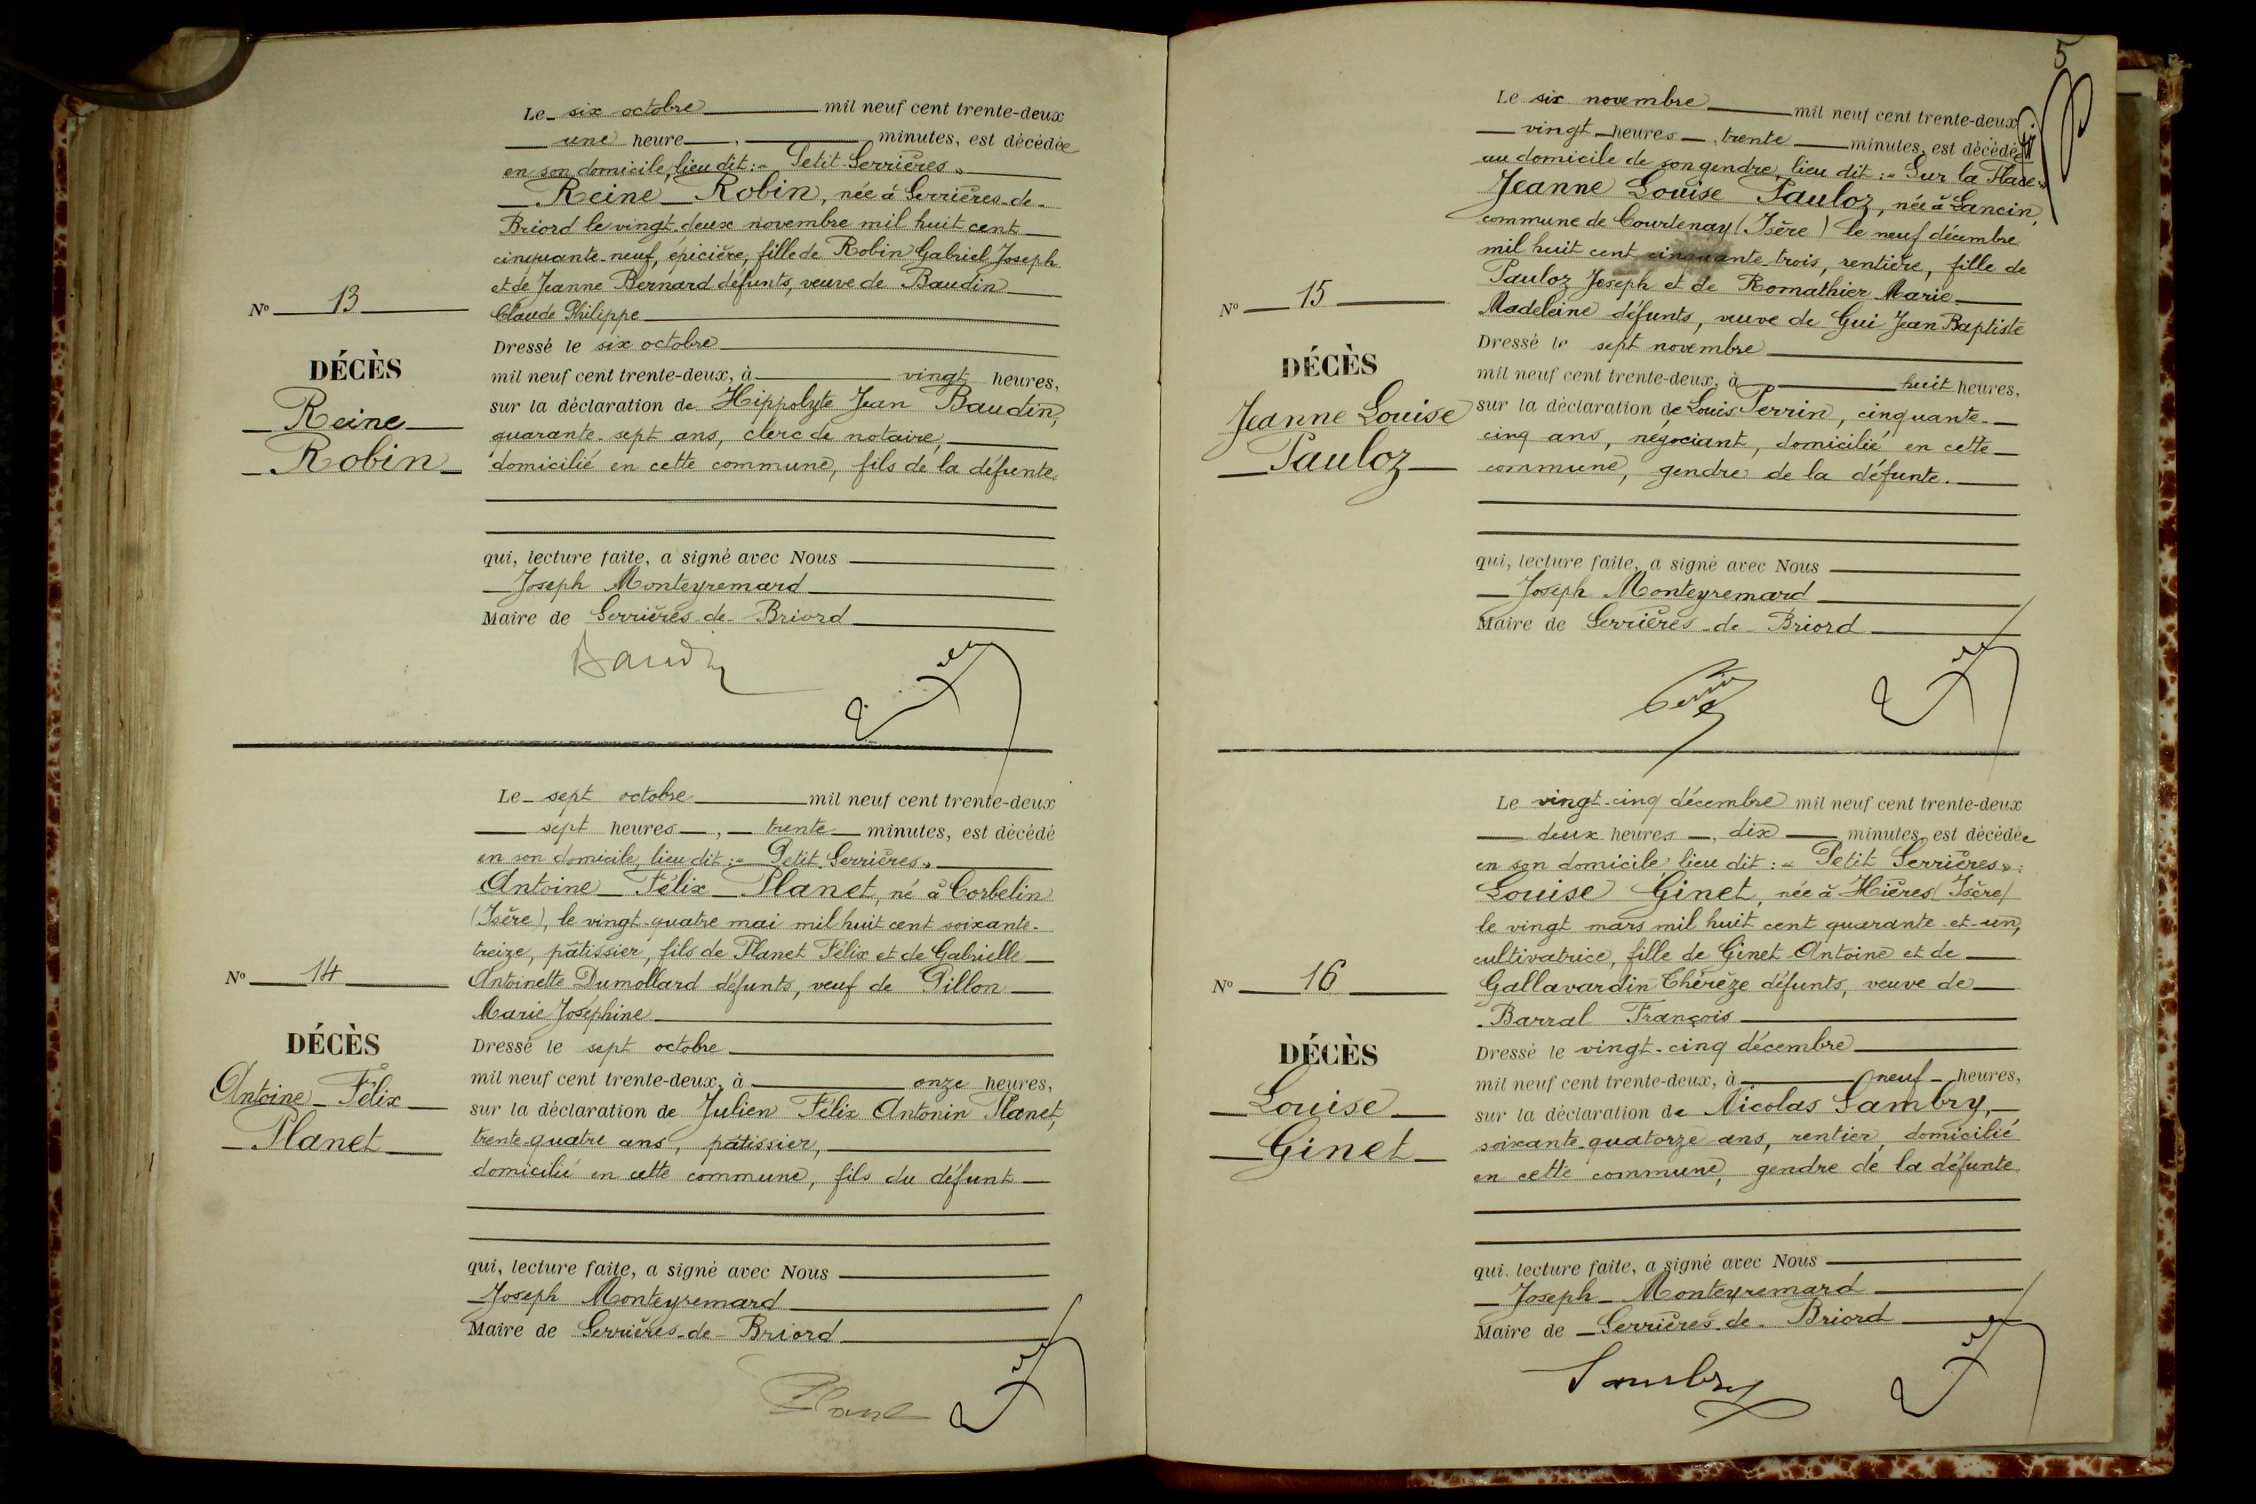 Le six octobre mil neuf cent trente-deux
une heure, minutes, est décédée
en son domicile, lieu dit : « Petit Serrières »
Reine Robin, née à Serrières-de-
Briord le vingt-deux novembre mil huit cent
cinquante-neuf, épicière, fille de Robin Gabriel Joseph
et de Jeanne Bernard défunts, veuve de Baudin
Claude Philippe
N° 13
Dressé le six octobre
DÉCÈS
mil neuf cent trente-deux, à vingt heures,
Reine
sur la déclaration de Hippolyte Jean Baudin,
quarante-sept ans, clerc de notaire,
Robin
domicilié en cette commune, fils de la défunte.
qui, lecture faite, a signé avec Nous
Joseph Monteyremard
Maire de Serrières-de-Briord
Baudin
Le sept octobre mil neuf cent trente-deux
sept heures, trente minutes, est décédé
en son domicile, lieu dit : « Petit Serrières »
Antoine Félix Planet, né à Corbelin
(Isère), le vingt-quatre mai mil huit cent soixante-
treize, pâtissier, fils de Planet Félix et de Gabrielle
N° 14
Antoinette Dumollard défunts, veuf de Pillon
Marie Joséphine
DÉCÈS
Dressé le sept octobre
Antoine Félix
mil neuf cent trente-deux, à onze heures,
sur la déclaration de Julien Félix Antonin Planet,
Planet
trente-quatre ans, pâtissier,
domicilié en cette commune, fils du défunt
qui, lecture faite, a signé avec Nous
Joseph Monteyremard
Maire de Serrières-de-Briord
Planet
5
Le six novembre mil neuf cent trente-deux
vingt heures, trente minutes, est décédée
au domicile de son gendre, lieu dit : « Sur la Place »
Jeanne Louise Pauloz, née à Lancin,
commune de Courtenay (Isère) le neuf décembre
mil huit cent cinquante-trois, rentière, fille de
Pauloz Joseph et de Romathier Marie
N° 15
Madeleine défunts, veuve de Gui Jean Baptiste
Dressé le sept novembre
DÉCÈS
mil neuf cent trente-deux, à huit heures,
Jeanne Louise
sur la déclaration de Louis Perrin, cinquante-
cinq ans, négociant, domicilié en cette
Pauloz
commune, gendre de la défunte.
qui, lecture faite, a signé avec Nous
Joseph Monteyremard
Maire de Serrières-de-Briord
Le vingt-cinq décembre mil neuf cent trente-deux
deux heures, dix minutes, est décédée
en son domicile, lieu dit : « Petit Serrières » :
Louise Ginet, née à Hières (Isère)
le vingt mars mil huit cent quarante-et-un,
cultivatrice, fille de Ginet Antoine et de
N° 16
Gallavardin Thérèze défunts, veuve de
Barral François
DÉCÈS
Dressé le vingt-cinq décembre
mil neuf cent trente-deux, à neuf heures,
Louise
sur la déclaration de Nicolas Sambry,
Ginet
soixante-quatorze ans, rentier, domicilié
en cette commune, gendre de la défunte
qui, lecture faite, a signé avec Nous
Joseph Monteyremard
Maire de Serrières-de-Briord
Sambry